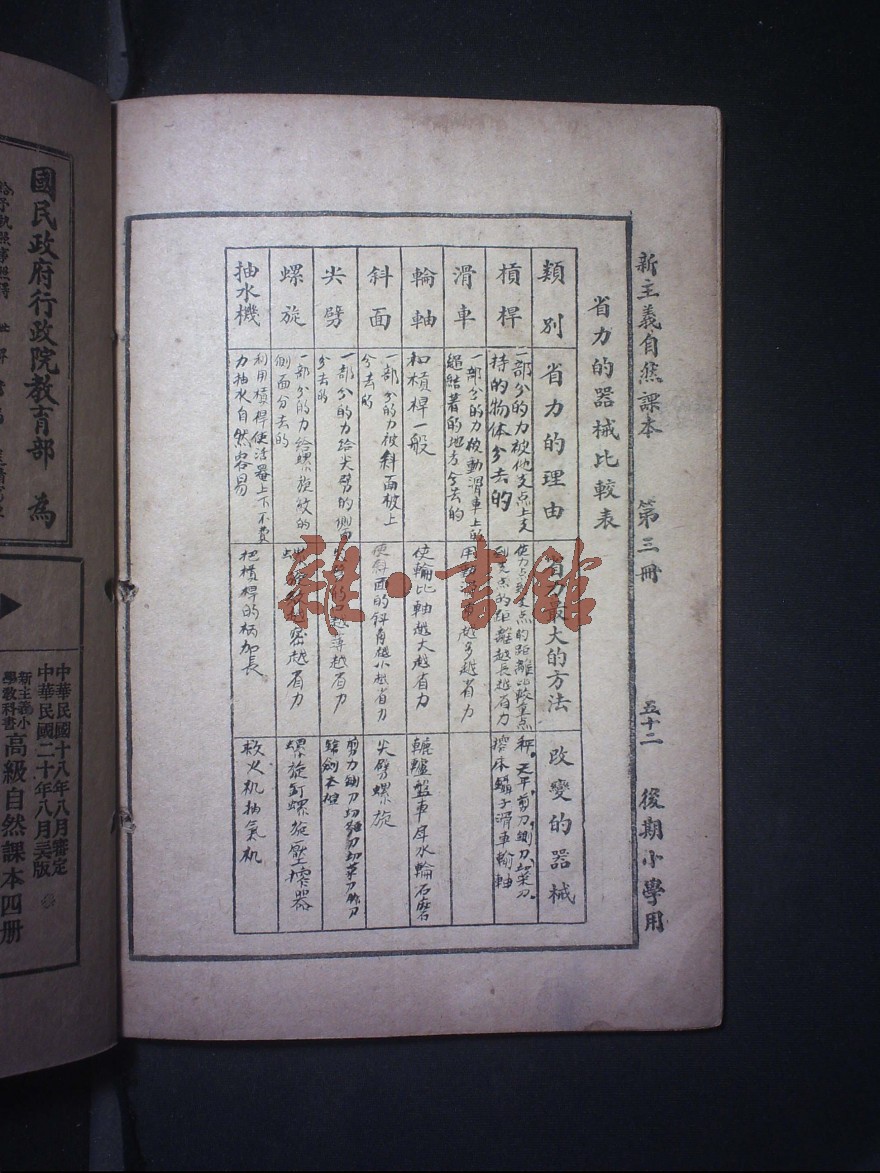 新主義自然課本 第三冊 五十二 後期小學用
省力的器械比較表
類別 省力的理由 省力最大的方法 改變的器械
槓桿
一部分的力被他支点上支
持的物体分去的
使力点到支点的距離比較重点
到支点的距離越長越省力
秤、天平、剪刀、鍘刀、切菜刀、
榨床鑷子滑車輪軸
滑車
一部分的力被動滑車上的
繩結著的地方分去的
用動滑車越多越省力
輪軸
和槓桿一般
使輪比軸越大越省力
轆轤盤車戽水輪石磨
斜面
一部分的力被斜面板上
分去的
使斜面的斜角越小越省力
尖劈螺旋
尖劈
一部分的力給尖劈的側面
分去的
越薄越省力
螺旋
一部分的力給螺旋紋的
側面分去的
越密越省力
螺旋釘螺旋壓榨器
抽水機
利用槓桿使活塞上下不費
力抽水自然容易
把槓桿的柄加長
救火机抽氣机
雜·書館
國民政府行政院教育部 為
中華民國十八年八月審定
中華民國二十年八月
新主義小
學教科書
高級自然課本四册